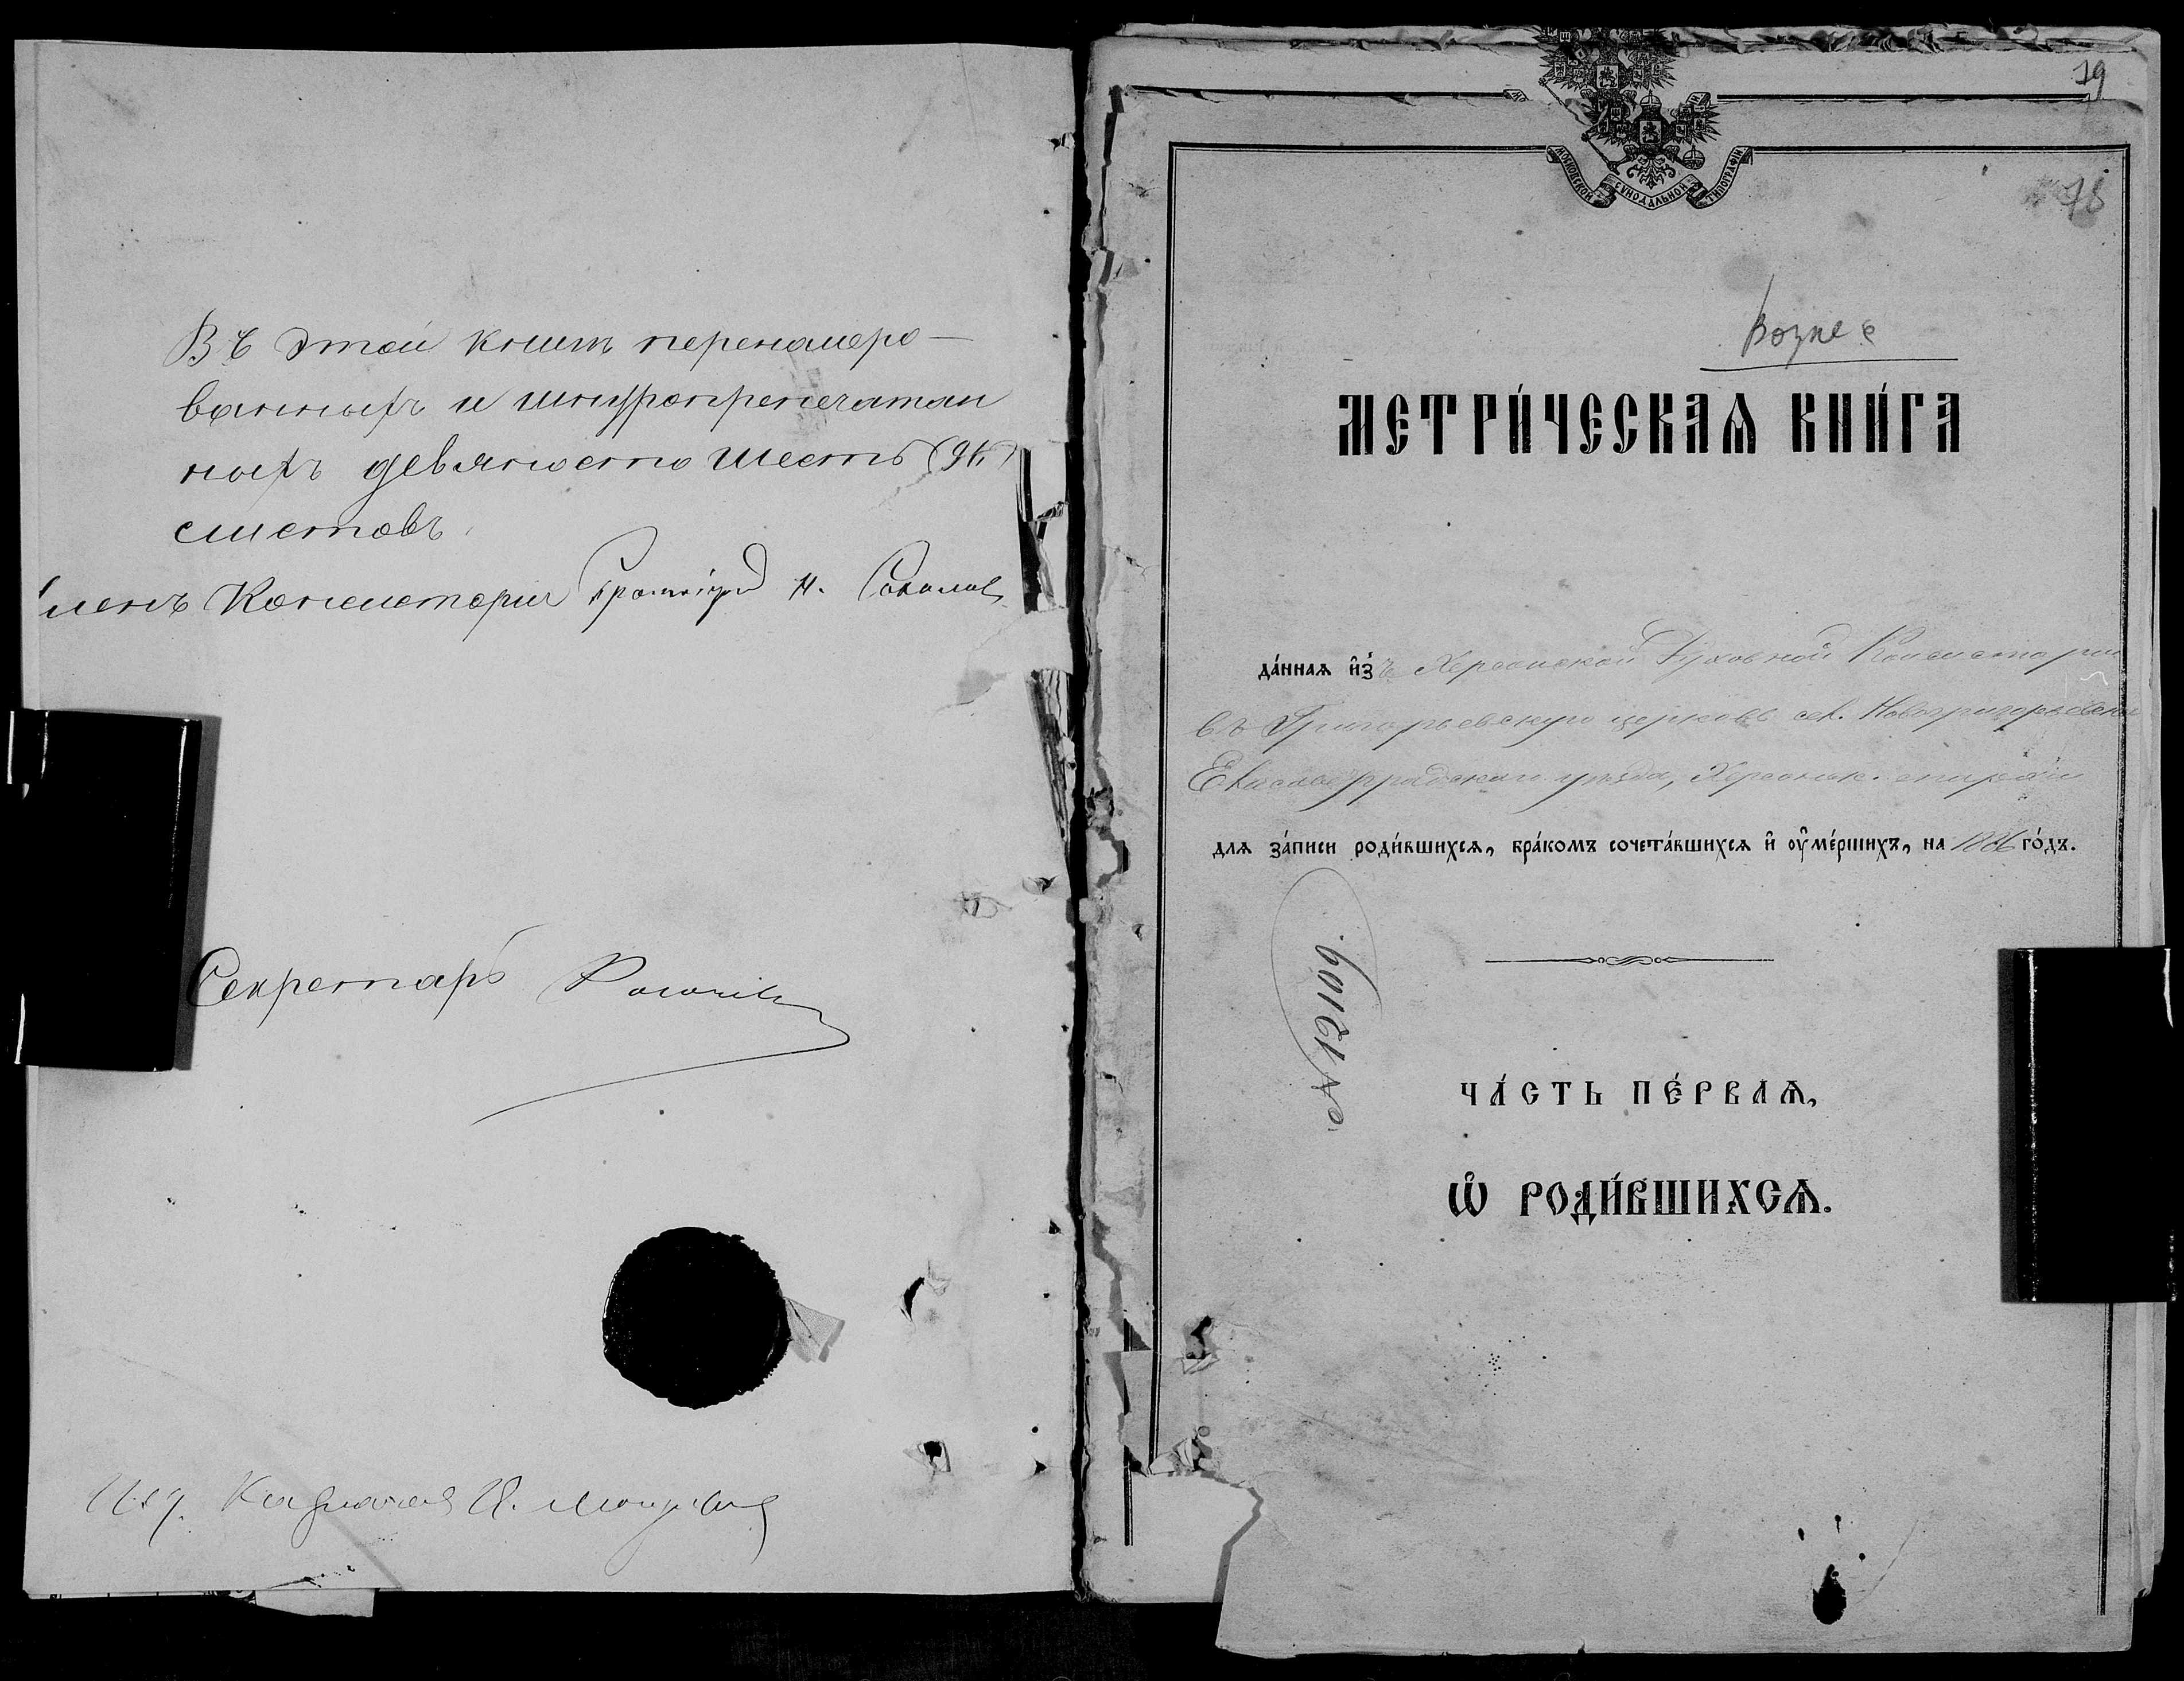 Въ этой книгѣ перенумеро-
ванныхъ и шнуропрепечатан
ныхъ девяносто шесть (96)
листовъ
Членъ Консисторіи Протоіерей Н. Соколовъ
Секретарь
Казначея
19
78
МОСКОВСКОЙ СѴНОДАЛЬНОЙ ТИПОГРАФІИ
Вознес
МЕТРИ́ЧЕСКАѦ КНИ́ГА
да́ннаѧ и҆зъ Херсонской Духовной Консисторіи
въ Григорьевскую церковь сел. Новогригорьевска
Елисаветградскаго уѣзда, Херсонск. епархіи
длѧ за́писи роди́вшихсѧ, бра́комъ сочета́вшихсѧ и҆ ᲂу҆ме́ршихъ, на 1886 го́дъ.
№ 12109
ЧА́СТЬ ПЕ́РВАѦ,
Ѽ РОДИ́ВШИХСѦ.